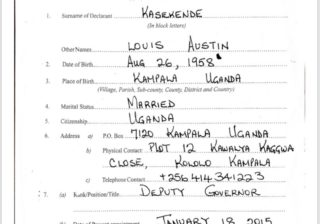 1. Surname of Declarant KASEKENDE
(In block letters)
Other Names LOUIS AUSTIN
2. Date of Birth AUG 26, 1958
3. Place of Birth KAMPALA UGANDA
(Village, Parish, Sub-county, County, District and Country)
4. Marital Status MARRIED
5. Citizenship UGANDA
6. Address a) P.O. Box 7120 KAMPALA UGANDA
b) Physical Contact PLOT 12 KAWALYA KAGGWA
CLOSE, KOLOLO KAMPALA
c) Telephone Contact +256414341223
7. (a) Rank/Position/Title DEPUTY GOVERNOR
JANUARY 18, 2015